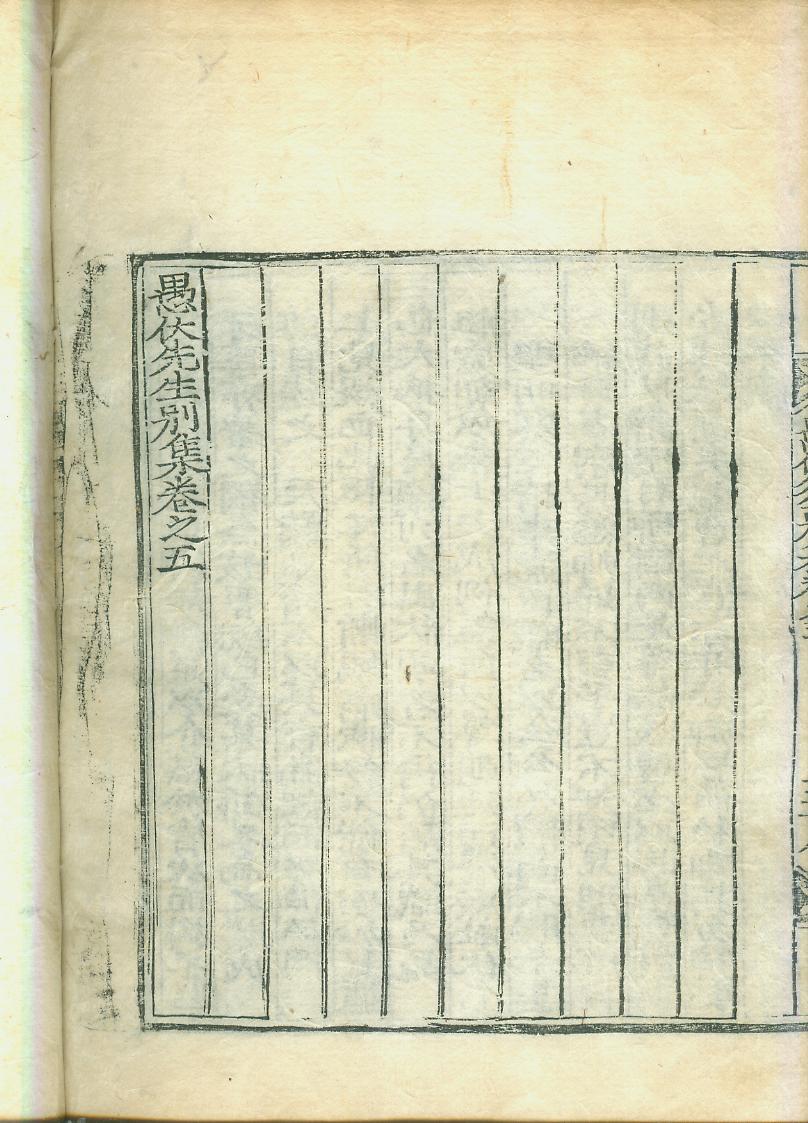 愚伏先生別集卷之五